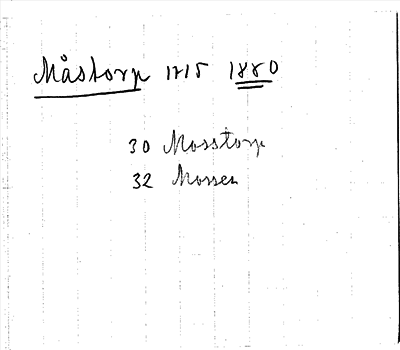 Måstorp 1715 1880
30 Mosstorp
32 Mossen